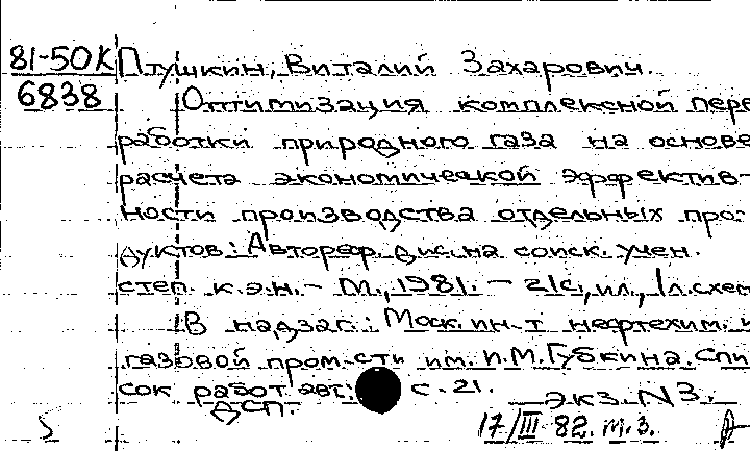 81-50К Птушкин, Виталий Захарович.
6838 Оптимизация комплексной пере
работки природного газа на основе
расчета экономической эффектив-
ности производства отдельных про-
дуктов: Автореф. дис. на соиск. учен.
степ. к.э.н. - М., 1981. - 21с., ил., 1л.схем
В надзаг.: Моск. ин-т нефтехим. и
газовой пром-сти им. И.М. Губкина. Спи
сок работ авт.: с. 21.
ДСП. экз. N3.
17/III 82. м.з.